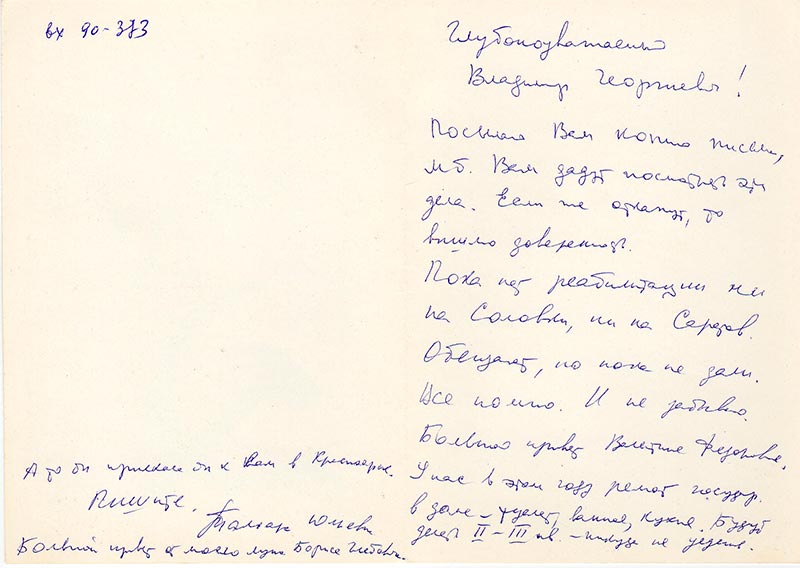 вх 90-373
Глубокоуважаемый
Владимир Георгиевич!
Посылаю Вам копию письма,
м.б. Вам дадут посмотреть эти
дела. Если же откажут, то
вышлю доверенность.
Пока нет реабилитации ни
на Соловки, ни на Саратов.
Обещают, но пока не дали.
Все помню. И не забываю.
Большой привет Валентине Федоровне.
У нас в этом году ремонт государ.
в доме – туалет, ванная, кухня. Будут
делать II – III кв. – никуда не уедешь.
А то бы приехала бы к Вам в Красноярск.
Пишите.
Тамара Юльевна
Большой привет от моего мужа Бориса Глебовича.